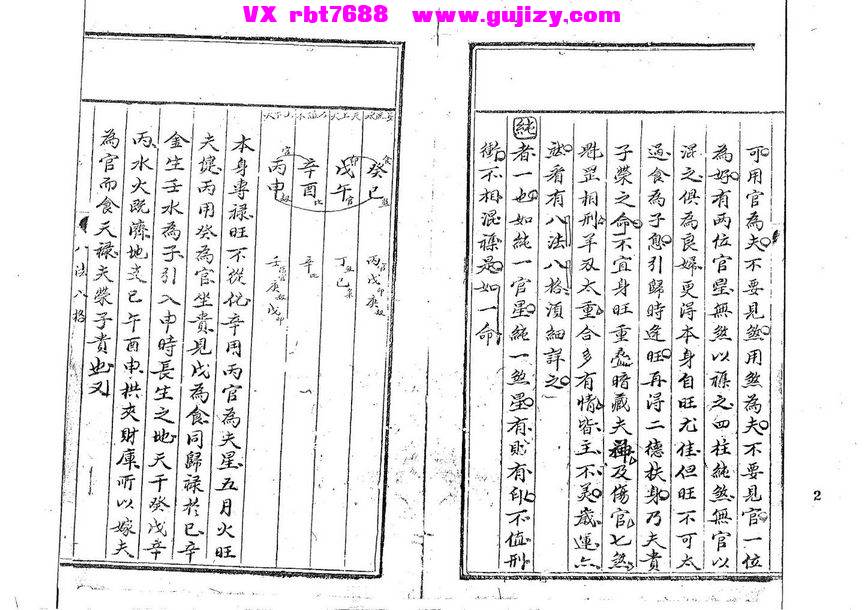 VX rbt7688 www.gujizy.com
可用官為夫不要見煞用煞為夫不要見官一位
為好有兩位官星無煞以襍之四柱純煞無官以
混之俱為良婦更得本身自旺尤佳但旺不可太
過食為子息引歸時逢旺再得二德扶身乃夫貴
子榮之命不宜身旺重叠暗藏夫神及傷官七煞
魁罡相刑羊刃太重合多有情皆主不美歲運亦
然看有八法八格須細詳之
純者一也如純一官星純一煞星有財有印不值刑
衝不相混襍是如一命
2
癸巳
戊午
辛酉
丙申
丙戊庚
丁己
辛
壬庚戊
本身專祿旺不從化辛用丙官為夫星五月火旺
夫健丙用癸為官坐貴見戊為食同歸祿於巳辛
金生壬水為子引入申時長生之地天干癸戊辛
丙水火既濟地支巳午酉申拱夾財庫所以嫁夫
為官而食天祿夫榮子貴也又
八法八格